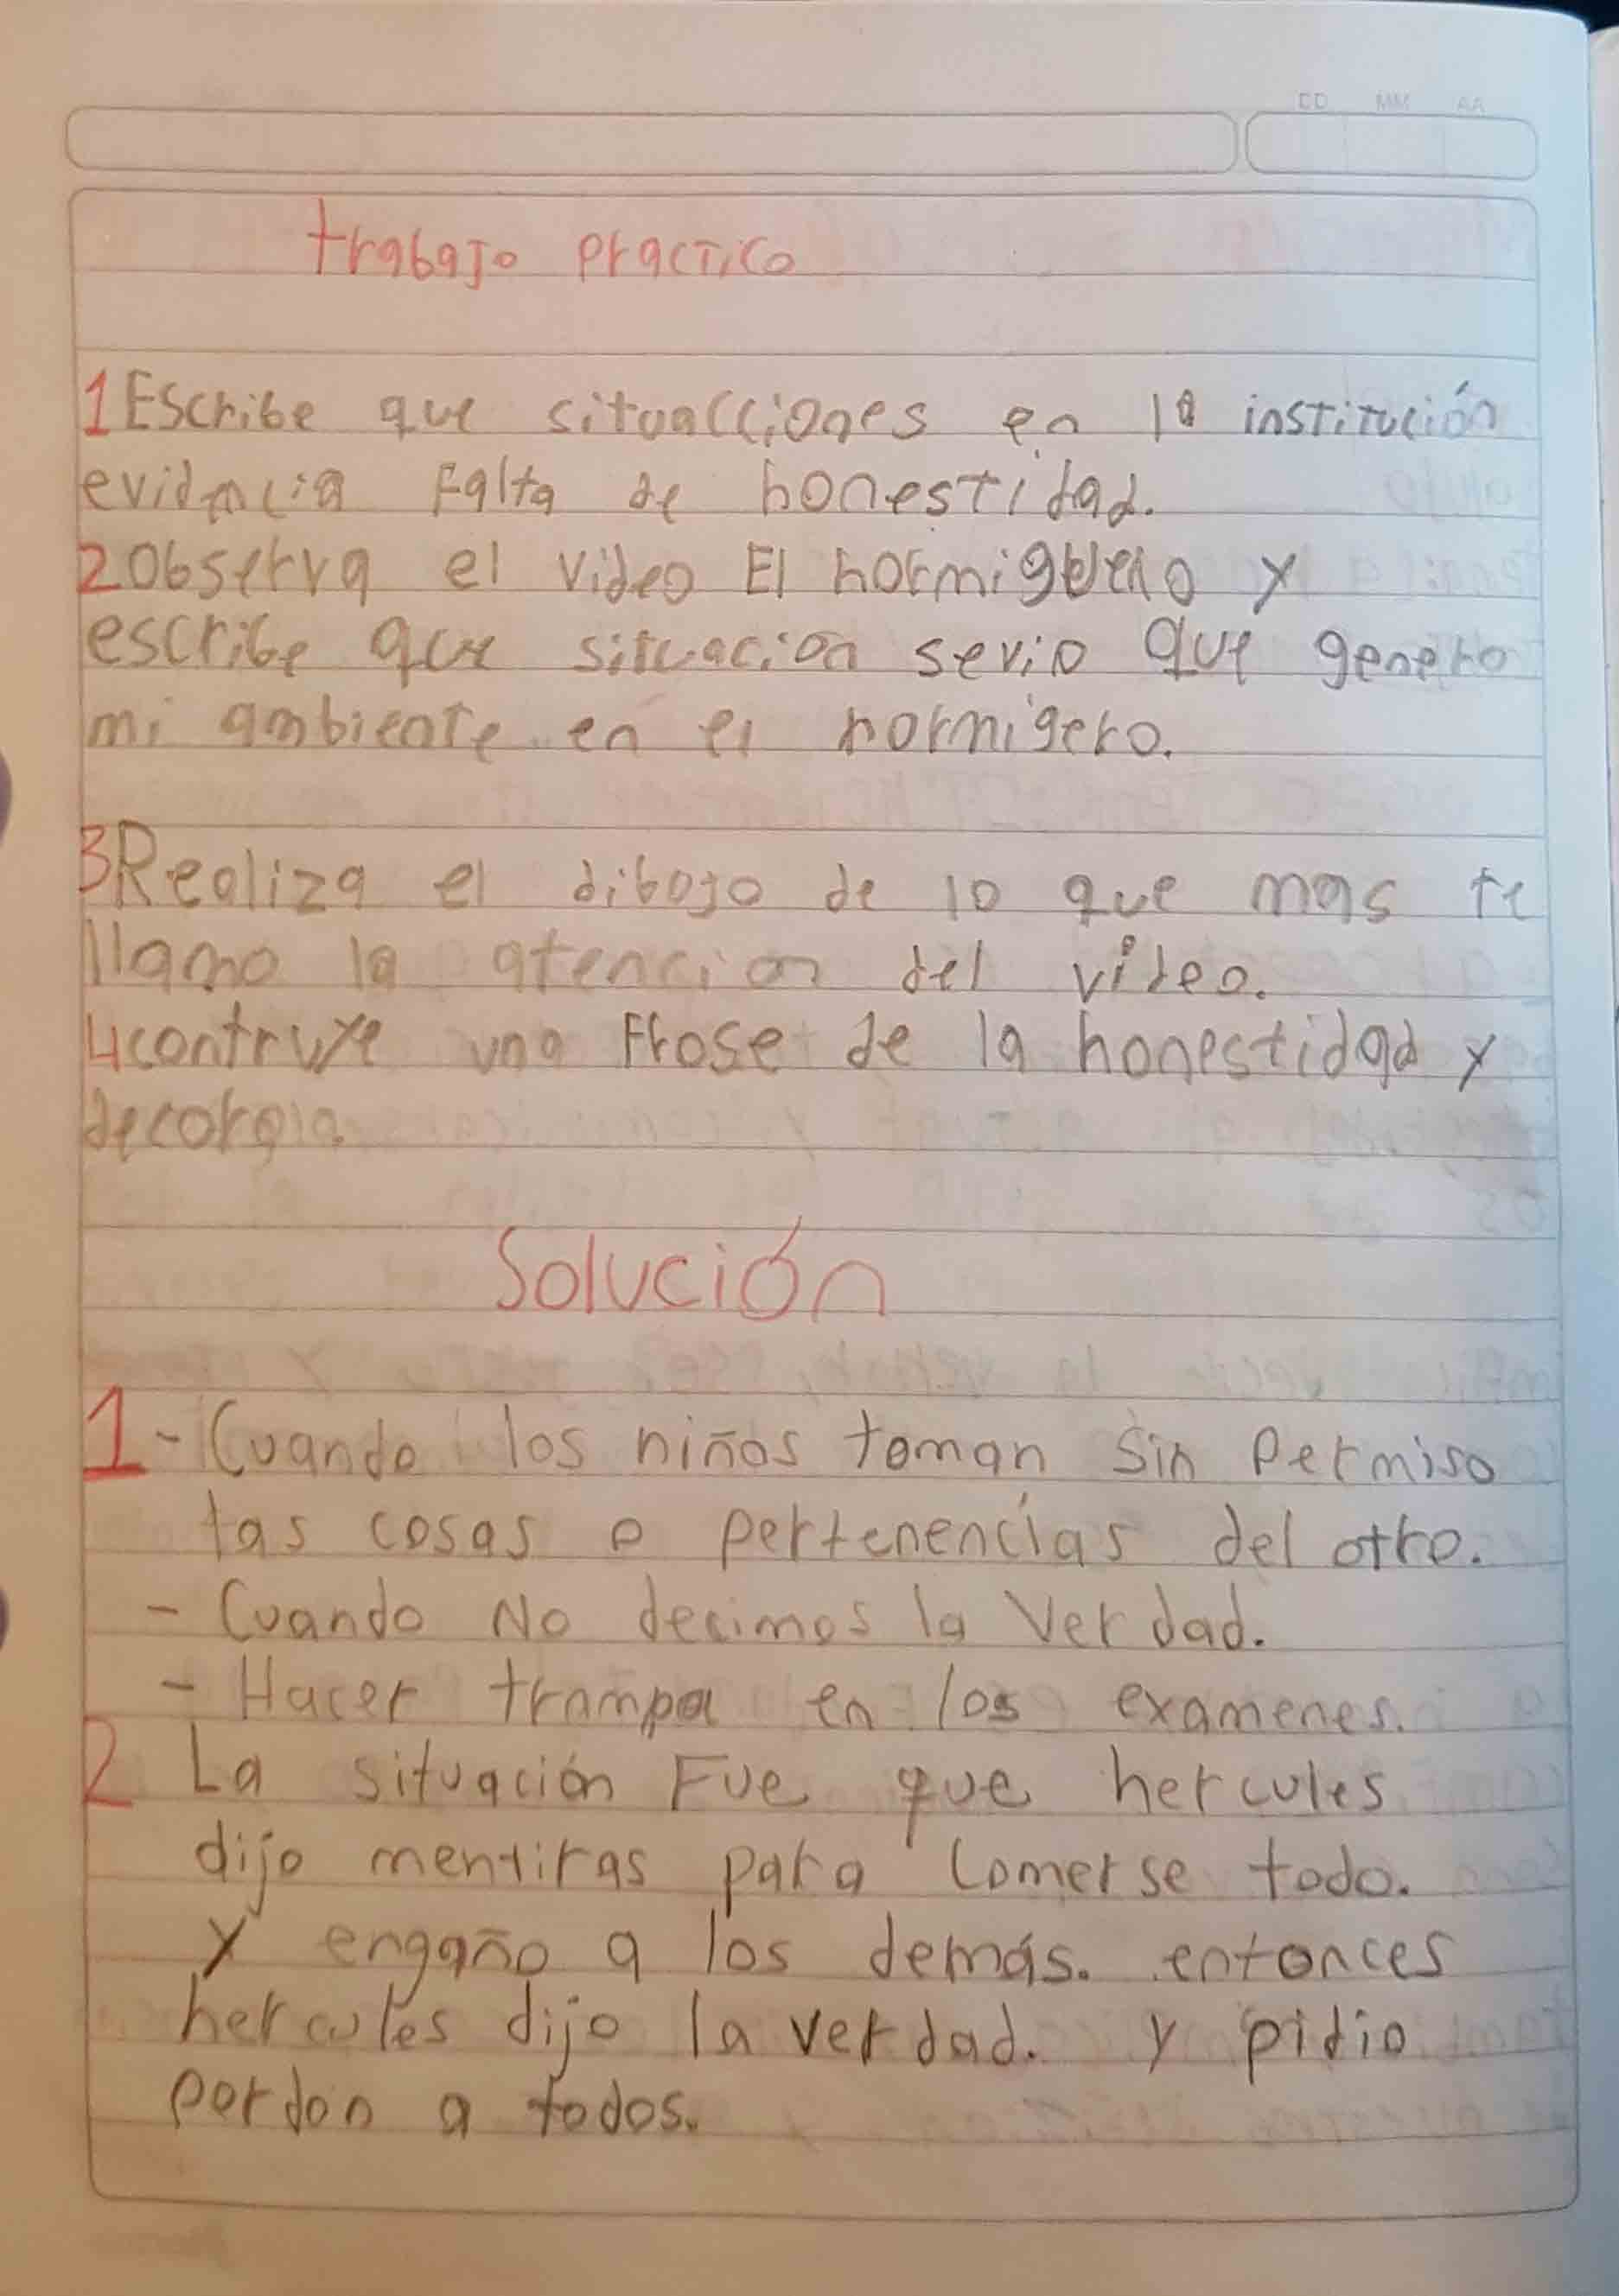 DD MM AA
trabajo practico
1 Escribe que situacciones en la institución
evidencia Falta de honestidad.
2 Observa el video El hormiguero y
escribe que situación sevio que genero
mi ambiente en el hormigero.
3 Realiza el dibojo de lo que mas te
llamo la atencion del video.
4 contruye una Frase de la honestidad y
decorala.
Solución
1 - Cuando los niños toman sin permiso
las cosas o pertenencías del otro.
- Cuando No decimos la Verdad.
- Hacer trampa en los examenes.
2 La situación Fue que hercules
dijo mentiras para comerse todo.
y engaño a los demás. entonces
hercules dijo la verdad. y pidio
perdon a todos.